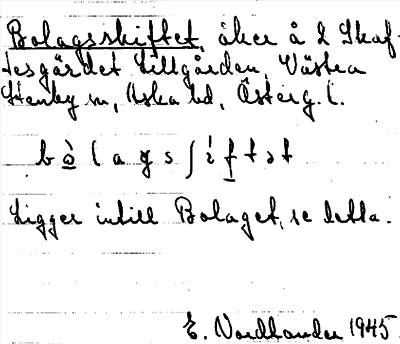 Bolagsskiftet, åker å L Skaf-
tesgärdet Lillgården, Västra
Stenby sn, Aska hd, Österg. l.
bò̱lagsʃif̱tət
Ligger intill Bolaget, se detta.
E. Nordlander 1945.